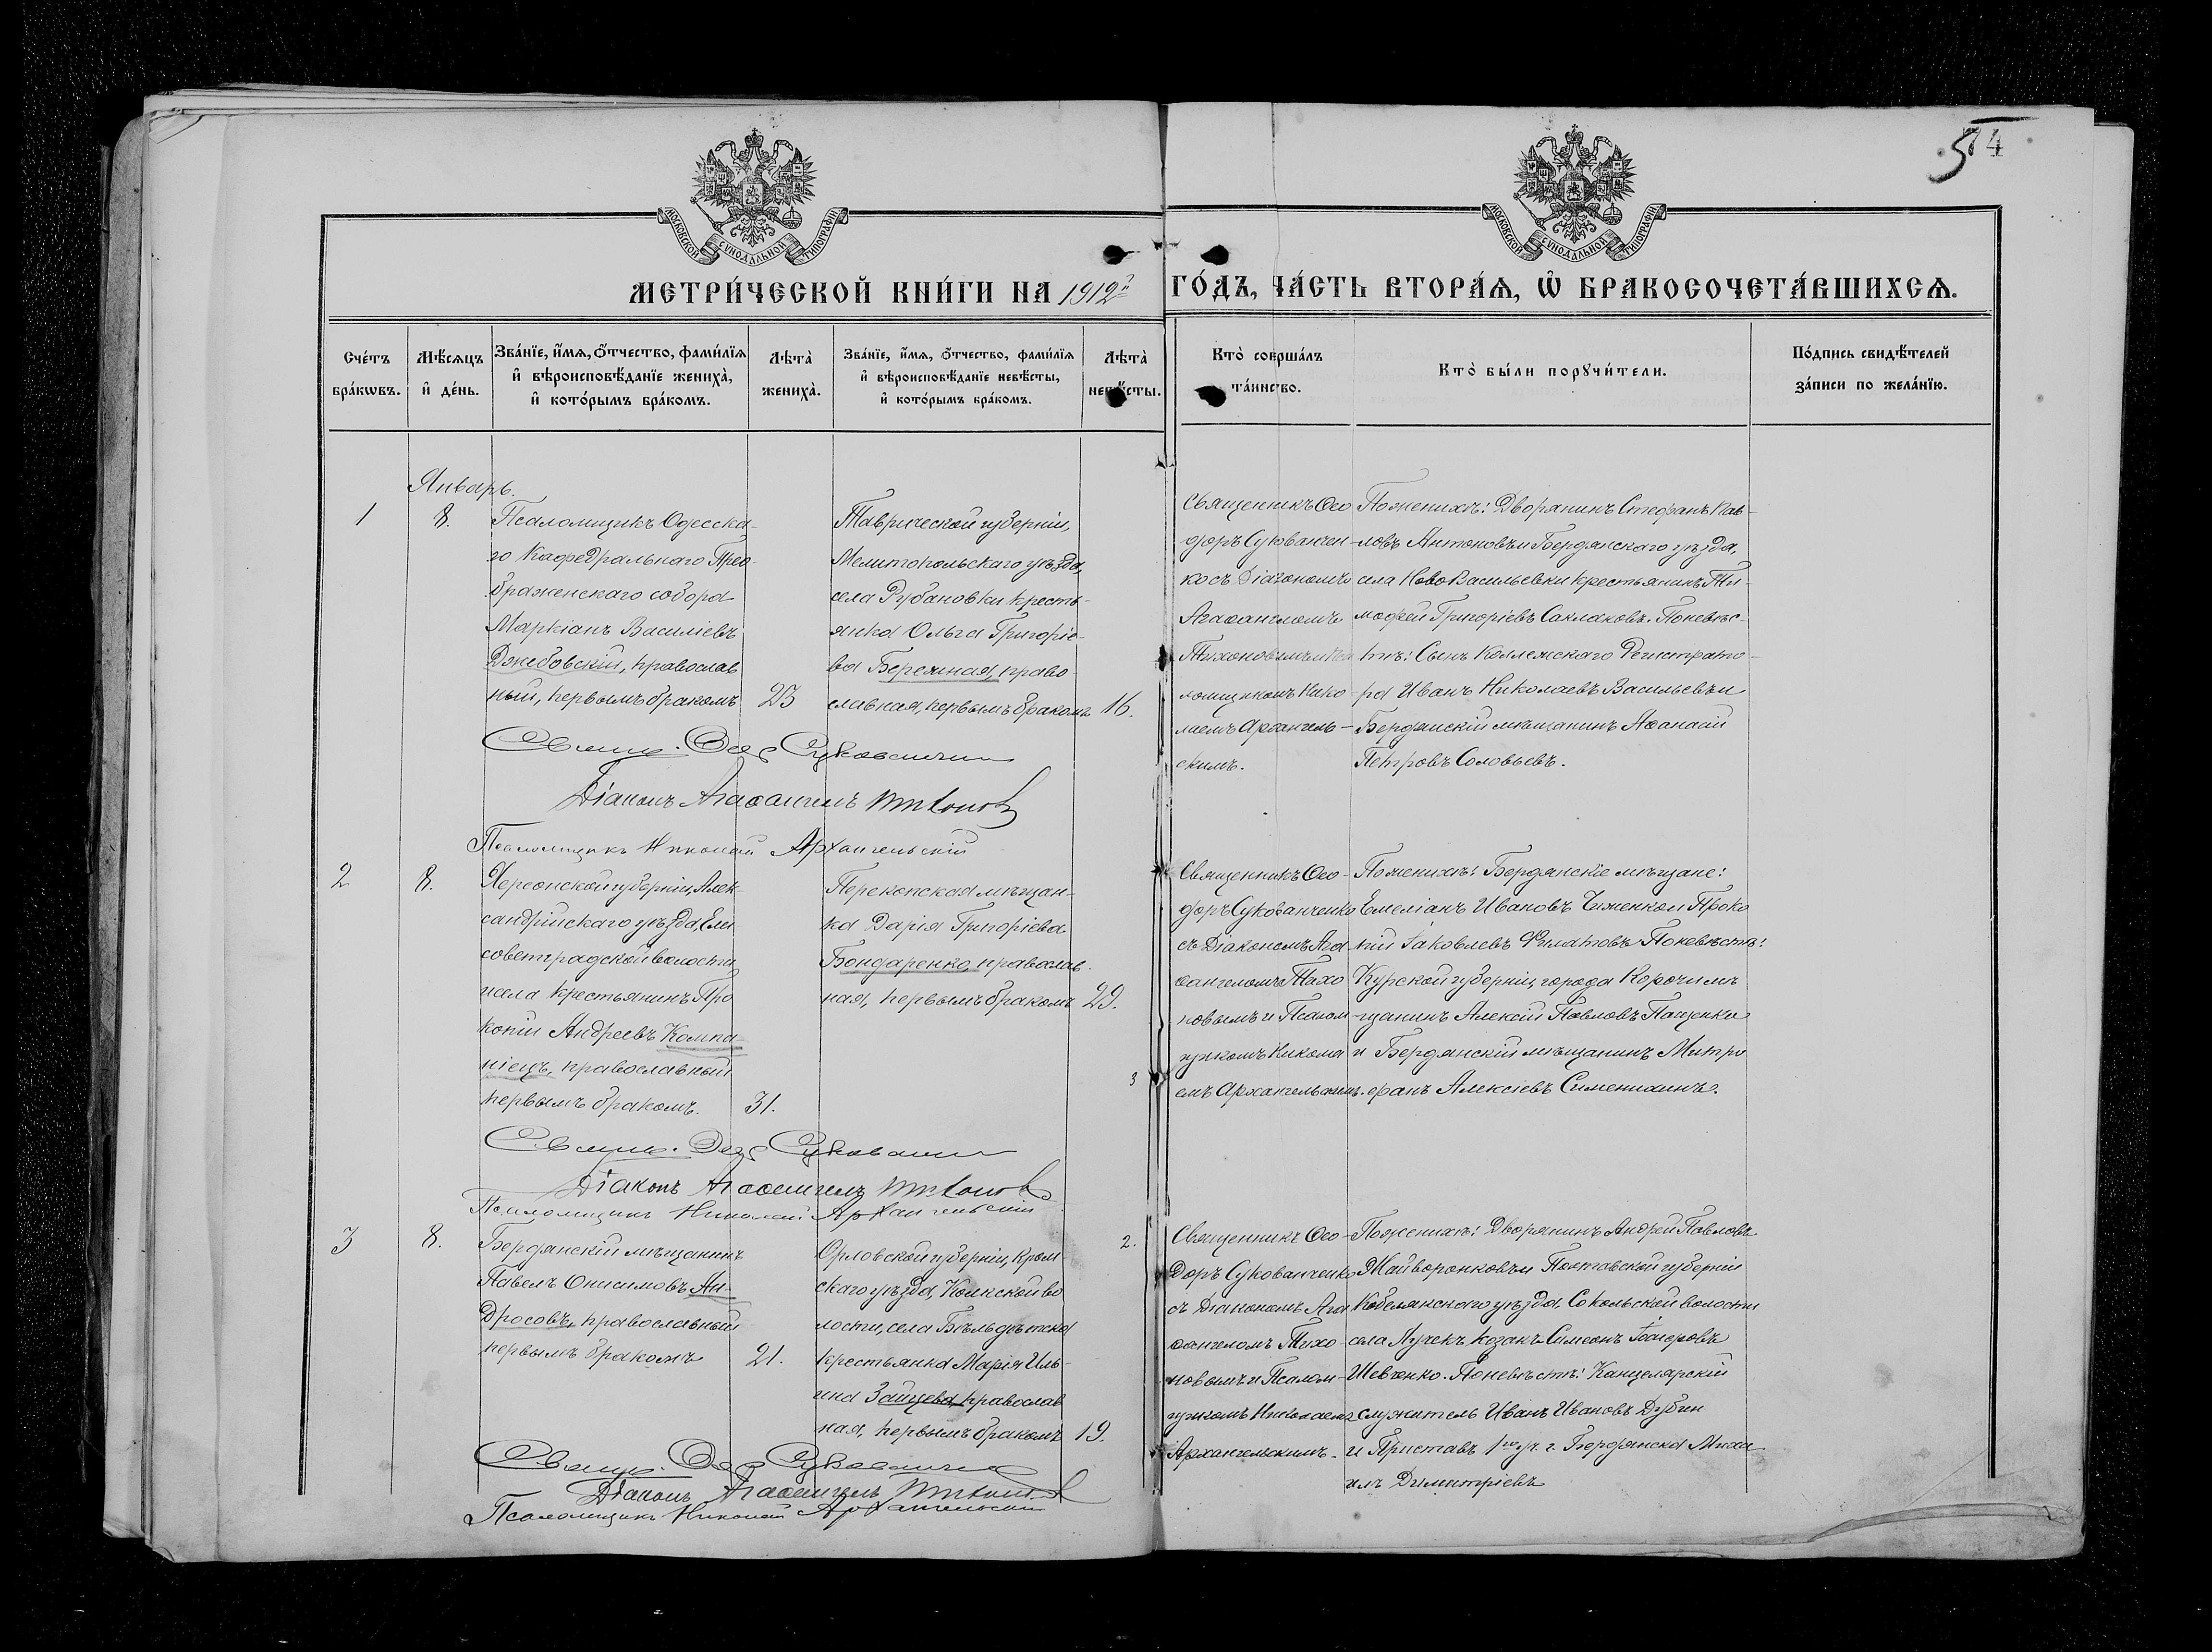 574
МОСКОВСКОЙ СѴНОДАЛЬНОЙ ТИПОГРАФІИ
МОСКОВСКОЙ СѴНОДАЛЬНОЙ ТИПОГРАФІИ
МЕТРИ́ЧЕСКОЙ КНИ́ГИ НА 1912й ГО́ДЪ, ЧА́СТЬ ВТОРА́Ѧ, Ѡ҆ БРАКОСОЧЕТА́ВШИХСѦ.
Сче́тъ бра́кѡвъ.
Мѣ́сѧцъ и҆ де́нь.
Зва́нїе, и҆́мѧ, ѻ҆́тчество, фами́лїѧ
и҆ вѣроисповѣ́данїе жениха̀,
и҆ кото́рымъ бра́комъ.
Лѣта̀ жениха̀.
Зва́нїе, и҆́мѧ, ѻ҆́тчество, фами́лїѧ
и҆ вѣроисповѣ́данїе невѣ́сты,
и҆ кото́рымъ бра́комъ.
Лѣта̀ невѣ́сты.
Кто̀ соверша́лъ
та́инство.
Кто̀ бы́ли порꙋчи́тели.
По́дпись свидѣ́телей
за́писи по жела́нїю.
Январь.
1
8.
Псаломщикъ Одесска-
го Кафедральнаго Прео-
браженскаго собора
Маркіанъ Василіевъ
Джебовскій, православ
ный, первымъ бракомъ
23
Таврической губерніи,
Мелитопольскаго уѣзда,
села Рубановки кресть-
янка Ольга Григоріе-
ва Бережная, право-
славная, первымъ бракомъ
16.
Священникъ Ѳео
доръ Сукованчен-
ко съ Діакономъ
Агаѳангеломъ
Тихоновымъ и Пса
ломщикомъ Нико-
лаемъ Архангель-
скимъ.
По женихѣ: Дворянинъ Стефанъ Пав-
ловъ Антоновъ и Бердянскаго уѣзда,
села НовоВасильевки крестьянинъ Ти-
мофей Григоріевъ Саклаковъ. По невѣс-
тѣ: Сынъ Коллежскаго Регистрато-
ра Иванъ Николаевъ Васильевъ и
Бердянскій мѣщанинъ Аѳанасій
Петровъ Соловьевъ.
Діаконъ Агаѳангелъ Тихоновъ
Псаломщикъ Николай Архангельскій
2
8.
Херсонской губерніи, Алек-
сандрійскаго уѣзда, Ели
советградской волости
села крестьянинъ Про
копій Андреевъ Компа-
ніецъ, православный
первымъ бракомъ.
31.
Перекопская мѣщан-
ка Дарія Григоріева
Бондаренко, православ-
ная, первымъ бракомъ
29.
3
Священникъ Ѳео-
доръ Сукованченко
съ Діакономъ Ага
ѳангеломъ Тихо
новымъ и Псалом-
щикомъ Никола
емъ Архангельскимъ.
По женихѣ: Бердянскіе мѣщане:
Емеліанъ Ивановъ Чиженко и Проко
пій Іаковлевъ Филатовъ. По невѣстѣ:
Курской губерніи, города Корочи мѣ
щанинъ Алексій Павловъ Пащенко
и Бердянскій мѣщанинъ Митро
фанъ Алексіевъ Сименихинъ.
Діаконъ Агаѳангелъ Тихоновъ
Псаломщикъ Николай Архангельскій
3
8.
Бердянскій мѣщанинъ
Павелъ Онисимовъ Ан-
дросовъ, православный
первымъ бракомъ
21.
Орловской губерніи, Кром
скаго уѣзда, во
лости, села
крестьянка Марія Иль-
ина Зайцева, православ
ная, первымъ бракомъ
19.
2.
Священникъ Ѳео-
доръ Сукованченко
съ Діакономъ Ага
ѳангеломъ Тихо-
новымъ и Псалом-
щикомъ Николаемъ
Архангельскимъ.
По женихѣ: Дворянинъ Андрей Павловъ
Майворонковъ и Полтавской губерніи
Кобелякскаго уѣзда, Сокольской волости
села Лучекъ козакъ Симеонъ
Шевченко. По невѣстѣ: Канцелярскій
служитель Иванъ Ивановъ Дубин
и Приставъ 1го уч. г. Бердянска Миха
илъ Димитріевъ
Діаконъ Агаѳангелъ Тихоновъ
Псаломщикъ Николай Архангельскій